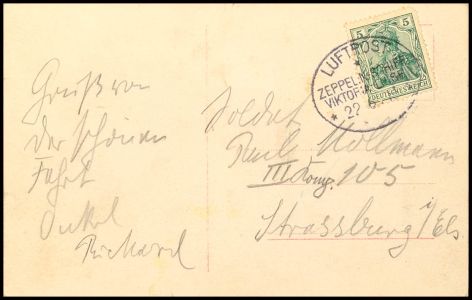 Gruß von
der schönen
Fahrt
Onkel
Richard
5 5
DEUTSCHES REICH
LUFTPOST
ZEPPELIN
VIKTORIA
22
Soldat
Paul Kollmann
III Komp. 105
Strassburg i/Els